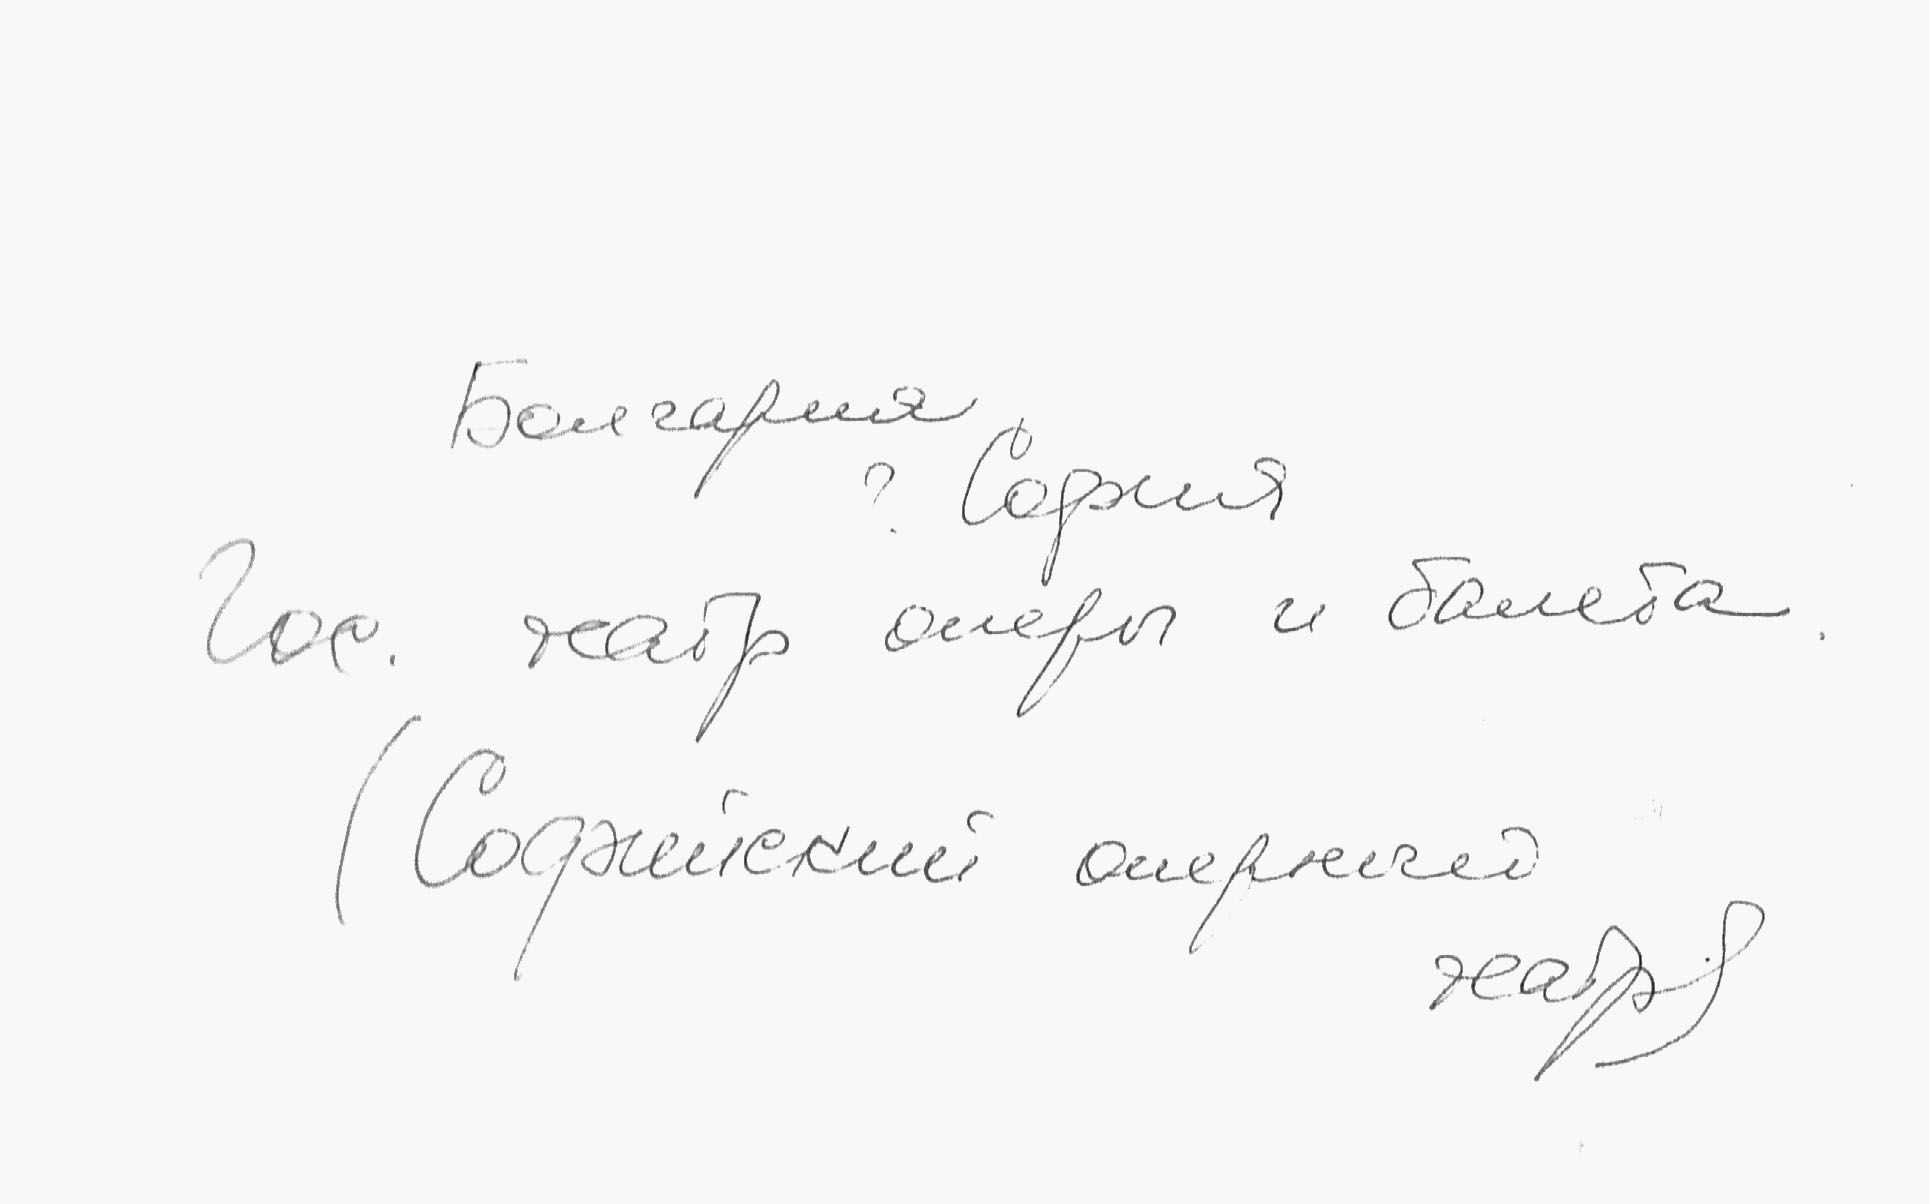 Болгария
? София
Гос. театр оперы и балета.
(Софийский оперный
театр)